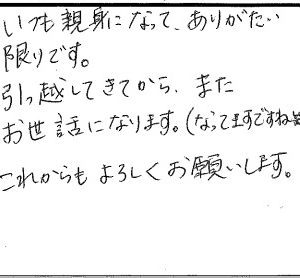 いつも親身になって、ありがたい
限りです。
引っ越してきてから、また
お世話になります。(なってますですね笑
これからもよろしくお願いします。